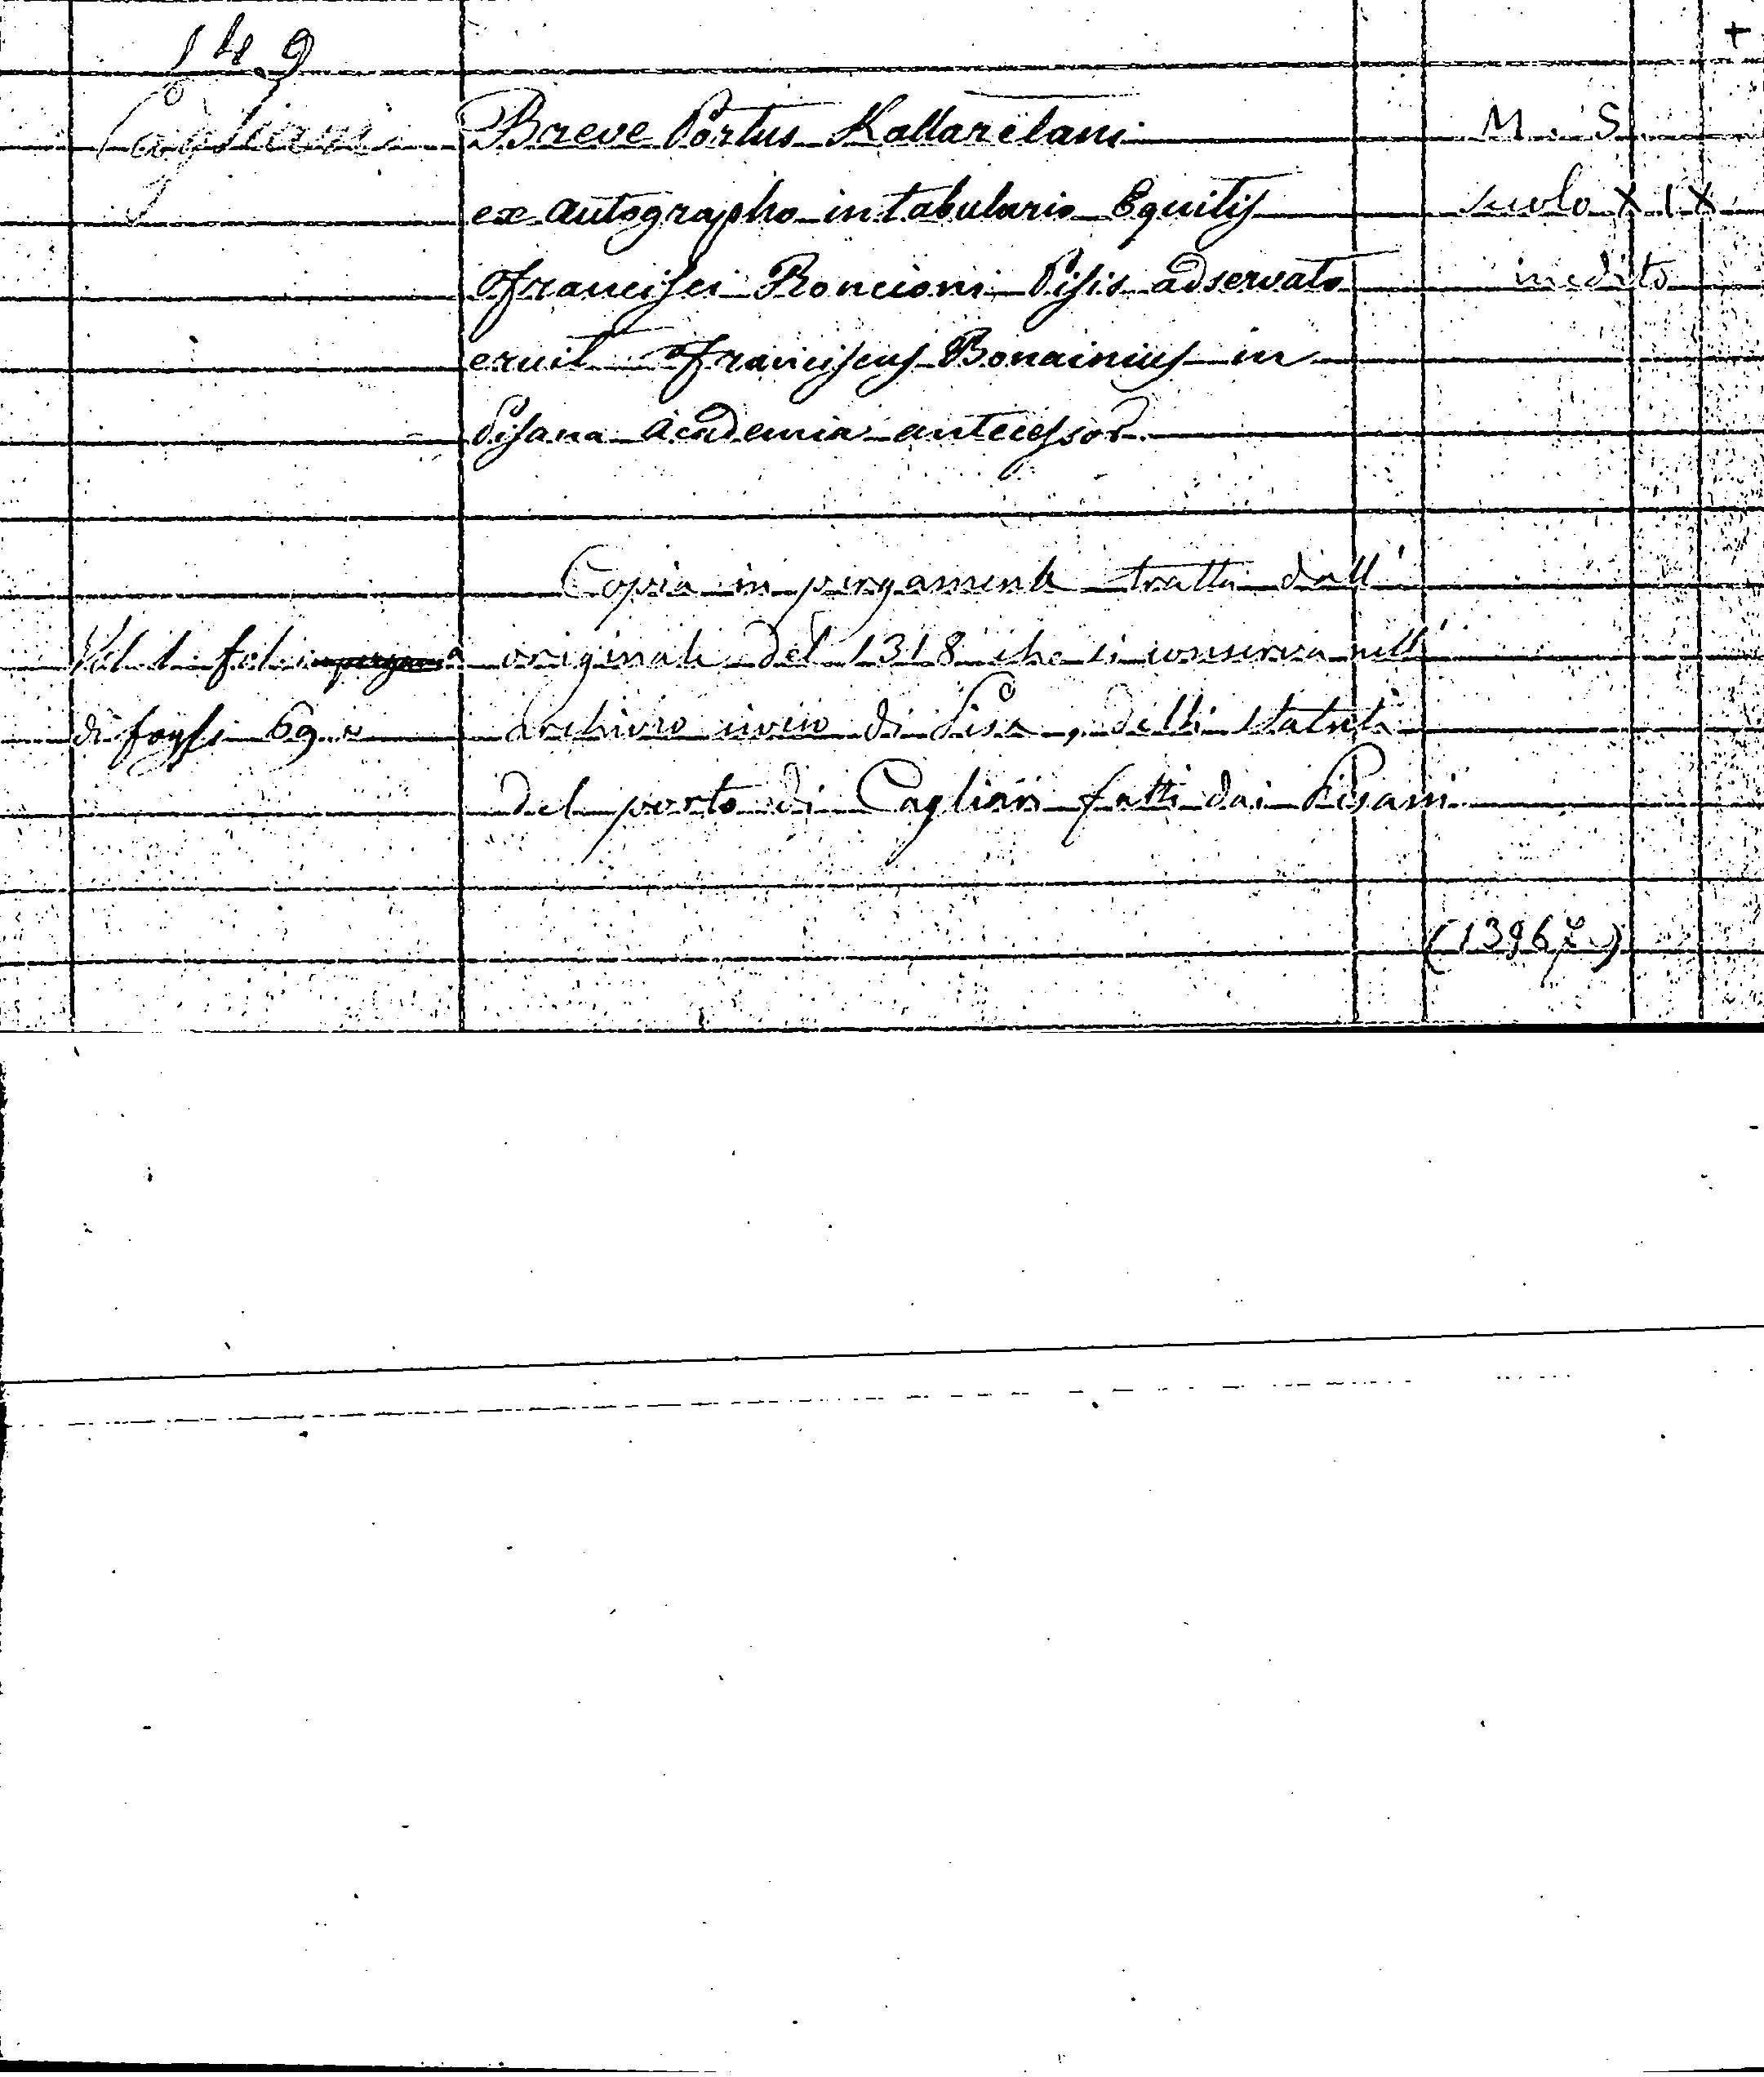 149
+
Cagliari
Breve Portus Kallaretani
M. S.
ex autographo in tabulario Equitis
secolo XIX
Francisci Roncioni Pisis adservato
inedito
eruit Franciscus Bonainius in
Pisana Academia antecessor.
Copia in pergamena tratta dall'
Vol. 1. fol.
originale del 1318 che si conserva nell'
di fogli 69.
Archivio civico di Pisa, delli statuti
del porto di Cagliari fatti dai Pisani
(13967)